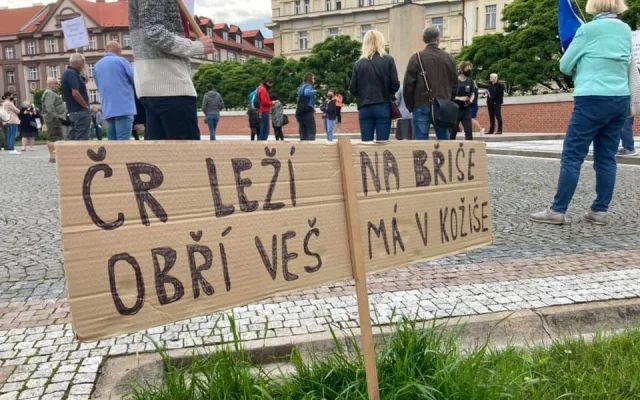 ČR LEŽÍ NA BŘIŠE
OBŘÍ VEŠ MÁ V KOŽIŠE